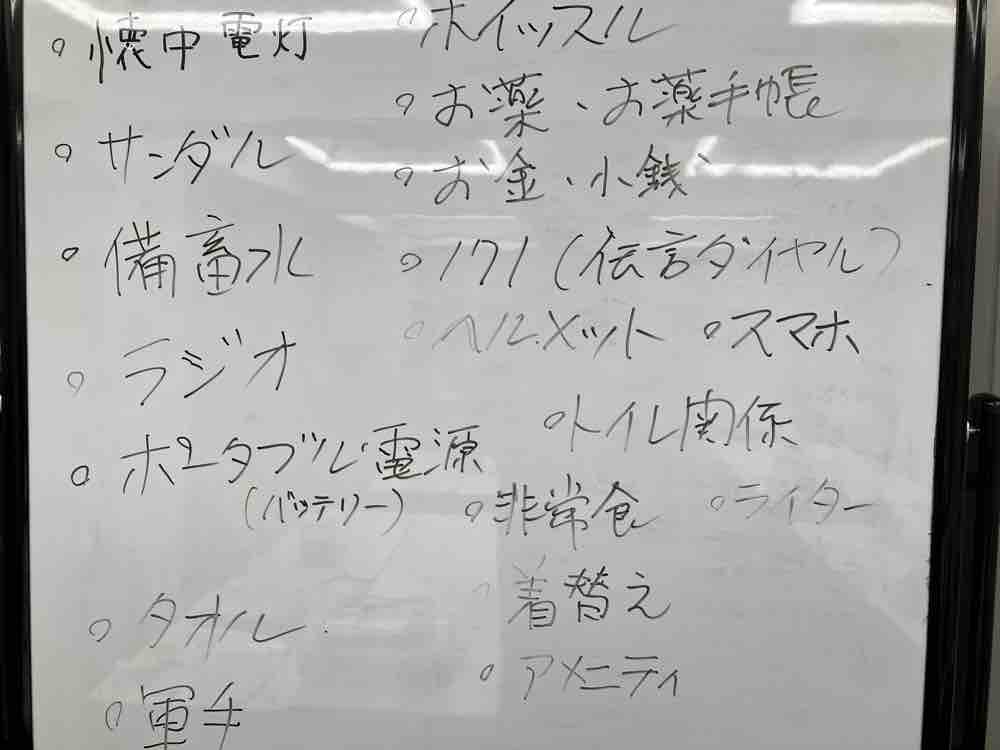 。懐中電灯
。サンダル
。備畜水
。ラジオ
。ポータブル電源
(バッテリー)
。タオル
。軍手
。ホイッスル
。お薬、お薬手帳
。お金、小銭
。171(伝言ダイヤル)
。ヘルメット 。スマホ
。トイレ関係
。非常食 。ライター
。着替え
。アメニティ